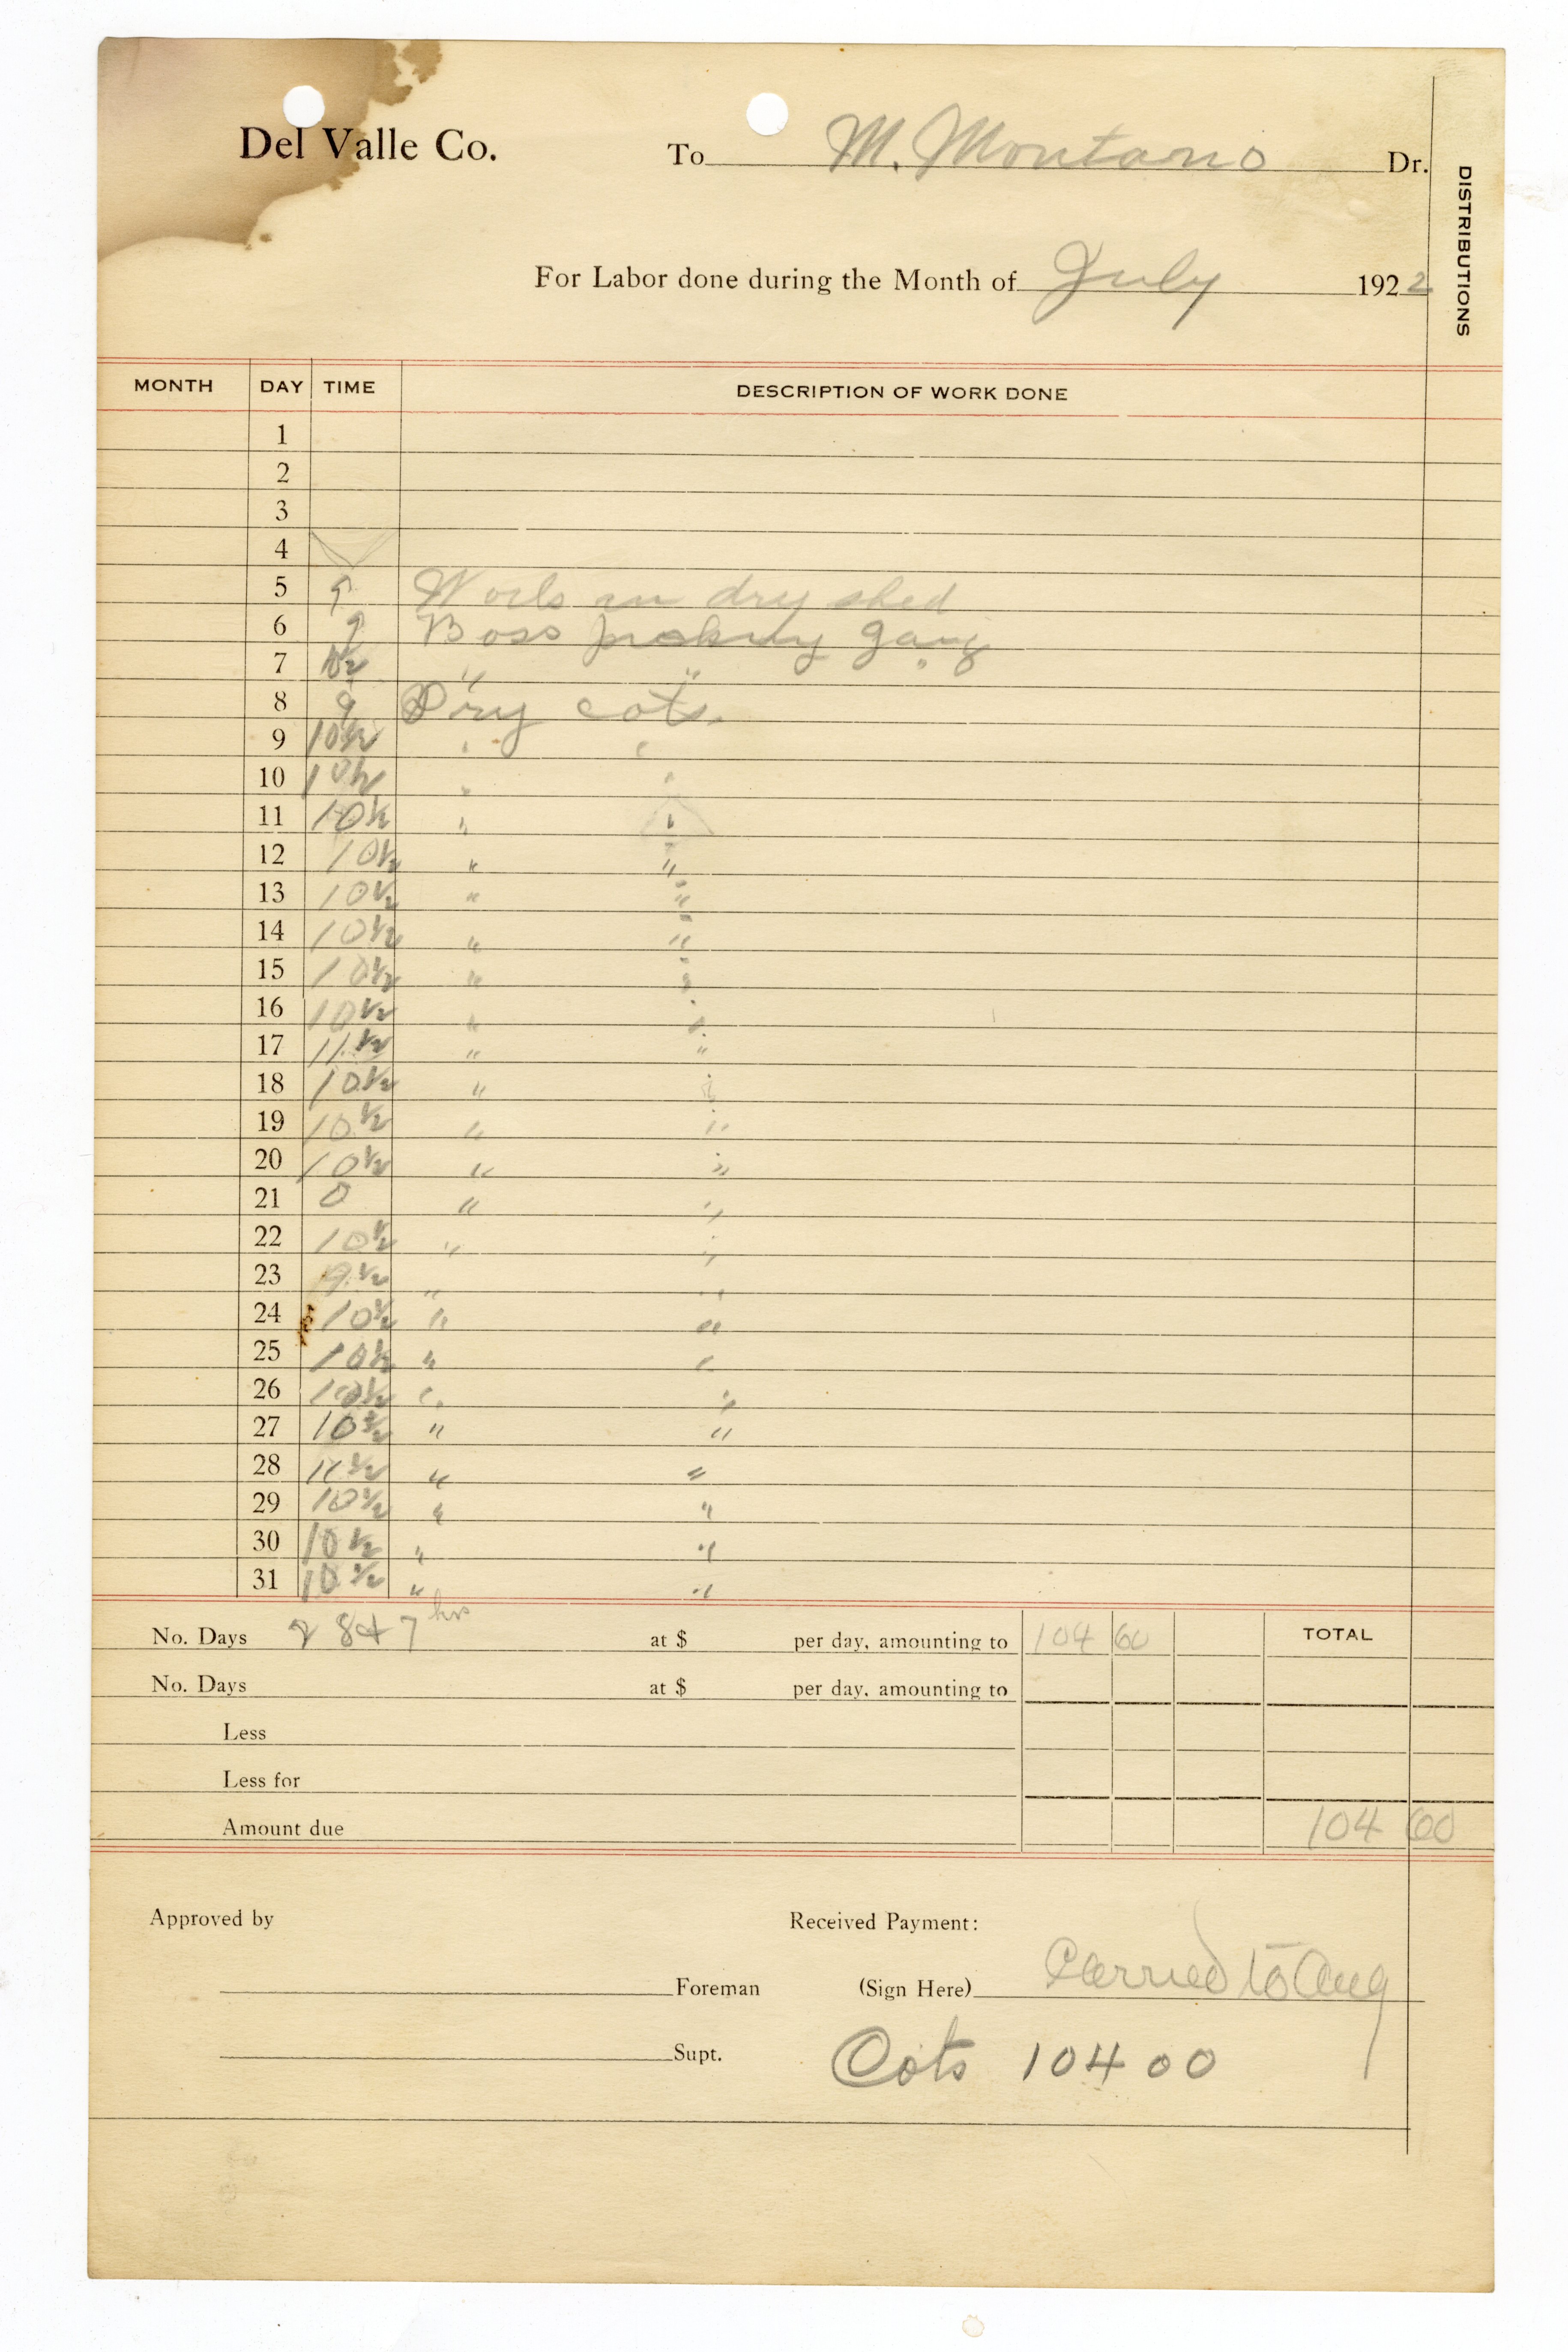 Del Valle Co.
To M. Montano Dr.
DISTRIBUTIONS
For Labor done during the Month of July 1922
MONTH DAY TIME DESCRIPTION OF WORK DONE
1
2
3
4
5 9 Work in dry shed
6 9 Boss picking gang
7 10½ " "
8 9 Dry cots.
9 10½ " "
10 10½ " "
11 10½ " "
12 10½ " "
13 10½ " "
14 10½ " "
15 10½ " "
16 10½ " "
17 11½ " "
18 10½ " "
19 10½ " "
20 10½ " "
21 0 " "
22 10½ " "
23 9½ " "
24 10½ " "
25 10½ " "
26 10½ " "
27 10½ " "
28 11½ " "
29 10½ " "
30 10½ " "
31 10½ " "
No. Days 28d 7 hrs at $ per day, amounting to 104 60 TOTAL
No. Days at $ per day, amounting to
Less
Less for
Amount due 104 60
Approved by Received Payment:
Foreman (Sign Here) Carried to Aug
Supt. Cots 104 00